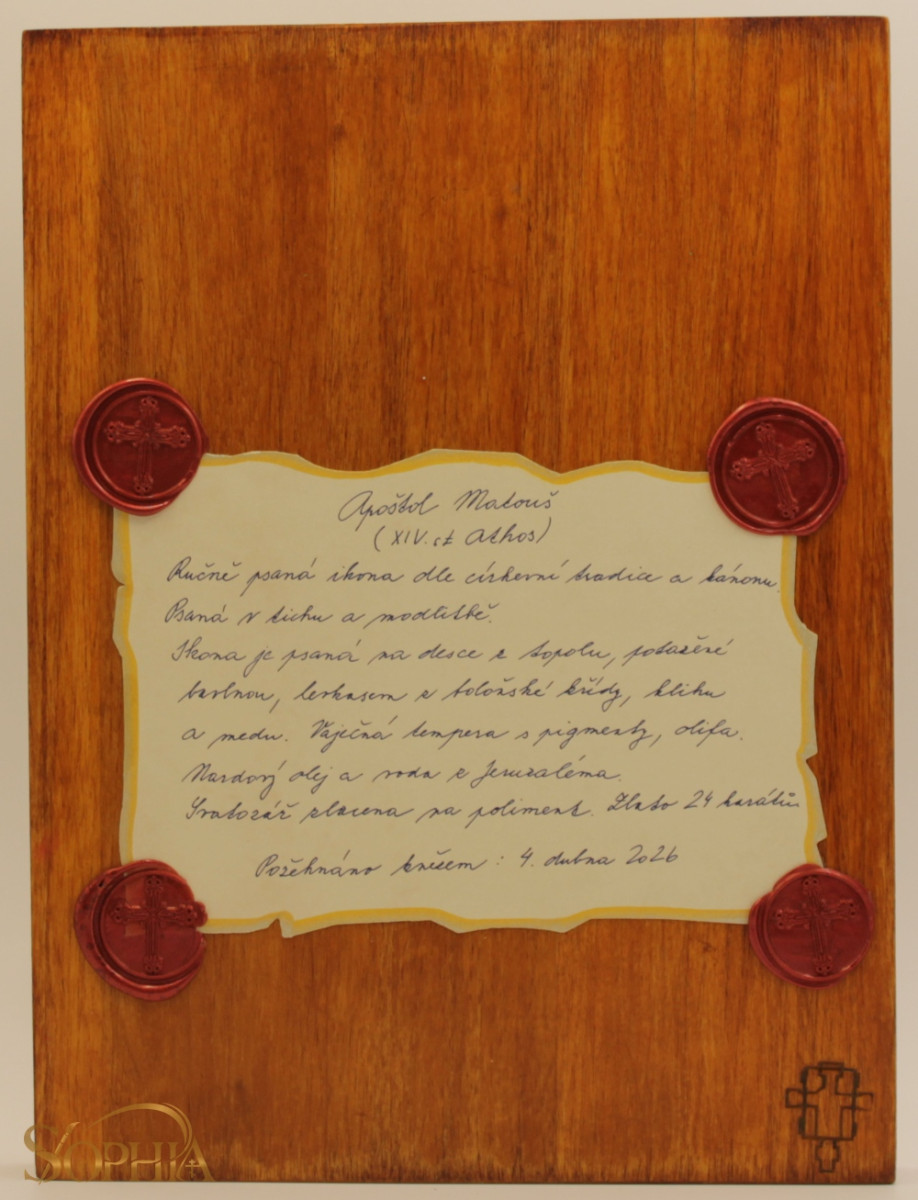 Apoštol Matouš
(XIV. st Athos)
Ručně psaná ikona dle církevní tradice a kánonu.
Psaná v tichu a modlitbě.
Ikona je psaná na desce z topolu, potažené
bavlnou, levkasem z boloňské křídy, klihu
a medu. Vaječná tempera s pigmenty, olifa.
Nardový olej a voda z Jeruzaléma.
Svatozář zlacena na poliment. Zlato 24 karátů
Požehnáno knězem : 4. dubna 2026
SOPHIA